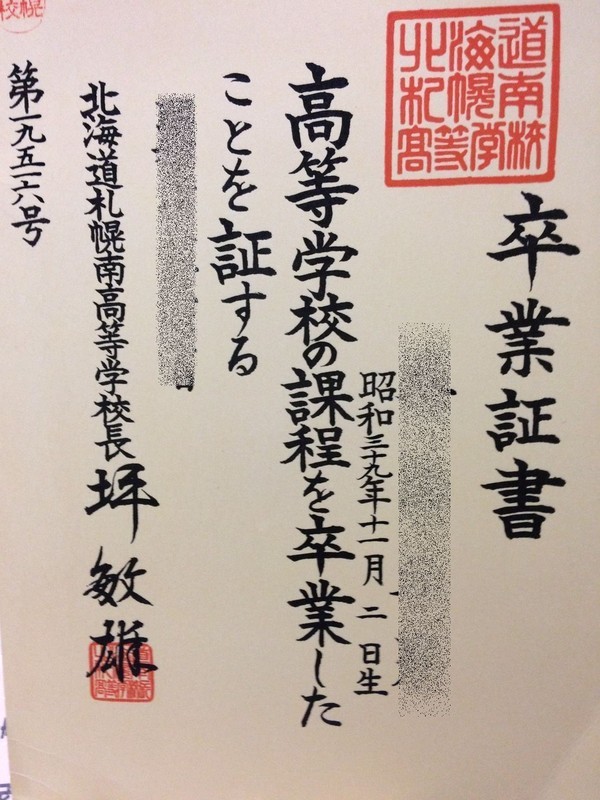 北海道
札幌南
高等学校
卒業証書
昭和三十九年十一月二日生
高等学校の課程を卒業した
ことを証する
北海道札幌南高等学校長 坪 敏雄
第一九五一六号